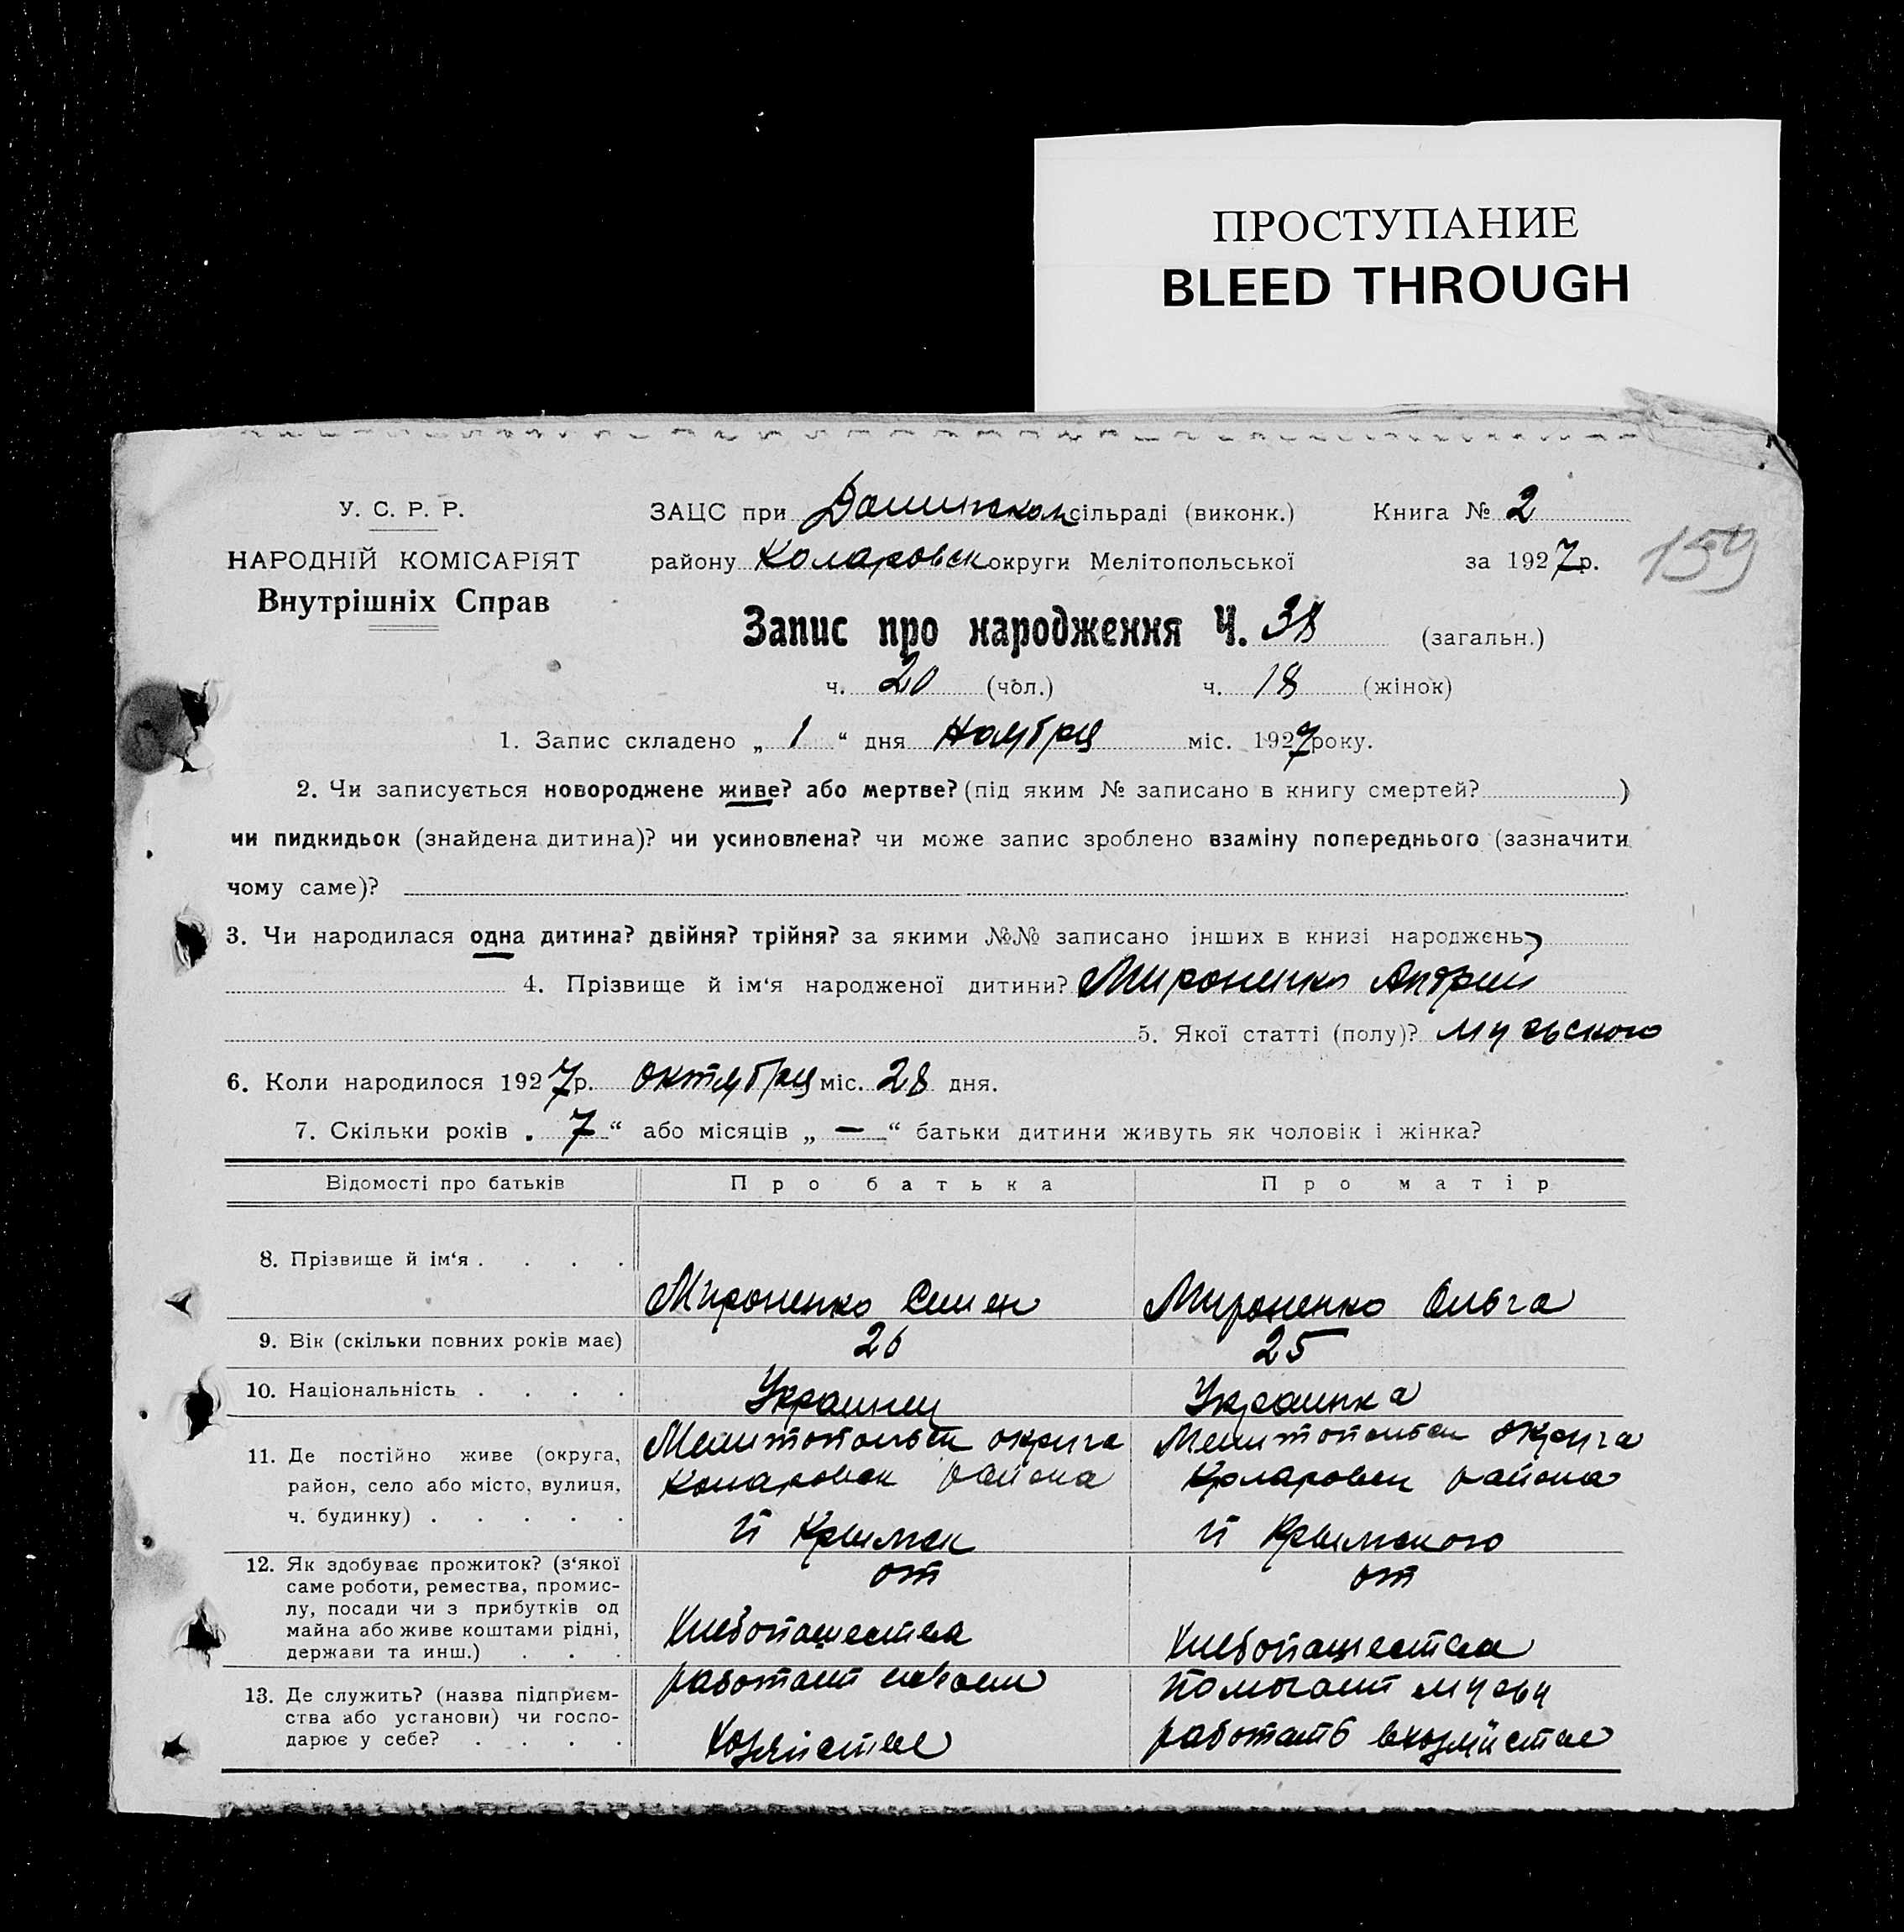 ПРОСТУПАНИЕ
BLEED THROUGH
У. С. Р. Р.
НАРОДНІЙ КОМІСАРІЯТ
Внутрішніх Справ
ЗАЦС при сільраді (виконк.) Книга № 2
району Коларовск округи Мелітопольської за 1927 р.
159
Запис про народження Ч. 38 (загальн.)
ч. 20 (чол.) ч. 18 (жінок)
1. Запис складено „ 1 “ дня Ноября міс. 1927 року.
2. Чи записується новороджене живе? або мертве? (під яким № записано в книгу смертей? )
чи пидкидьок (знайдена дитина)? чи усиновлена? чи може запис зроблено взаміну попереднього (зазначити
чому саме)?
3. Чи народилася одна дитина? двійня? трійня? за якими №№ записано інших в книзі народжень?
4. Прізвище й ім‘я народженої дитини? Мироненко Андрей
5. Якої статті (полу)? мужського
6. Коли народилося 1927 р. октября міс. 28 дня.
7. Скільки років „ 7 “ або місяців „ — “ батьки дитини живуть як чоловік і жінка?
Відомості про батьків Про батька Про матір
8. Прізвище й ім‘я . . . . Мироненко Семен Мироненко Ольга
9. Вік (скільки повних років має) 26 25
10. Національність . . . . Украинец Украинка
11. Де постійно живе (округа, Мелитопольск округа Мелитопольск округа
район, село або місто, вулиця, Коларовск района Коларовск района
ч. будинку) . . . . . Крымск Крымского
12. Як здобуває прожиток? (з‘якої от от
саме роботи, ремества, промис-
лу, посади чи з прибутків од
майна або живе коштами рідні, Хлебопашества Хлебопашества
держави та инш.) . . .
13. Де служить? (назва підприєм- работает помогает мужу
ства або установи) чи госпо-
дарює у себе? . . . . хозяйстве работать в хозяйстве